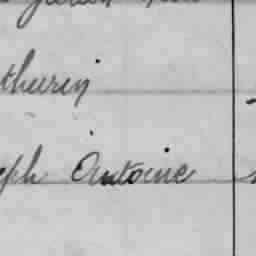 thurin
eph Antoine